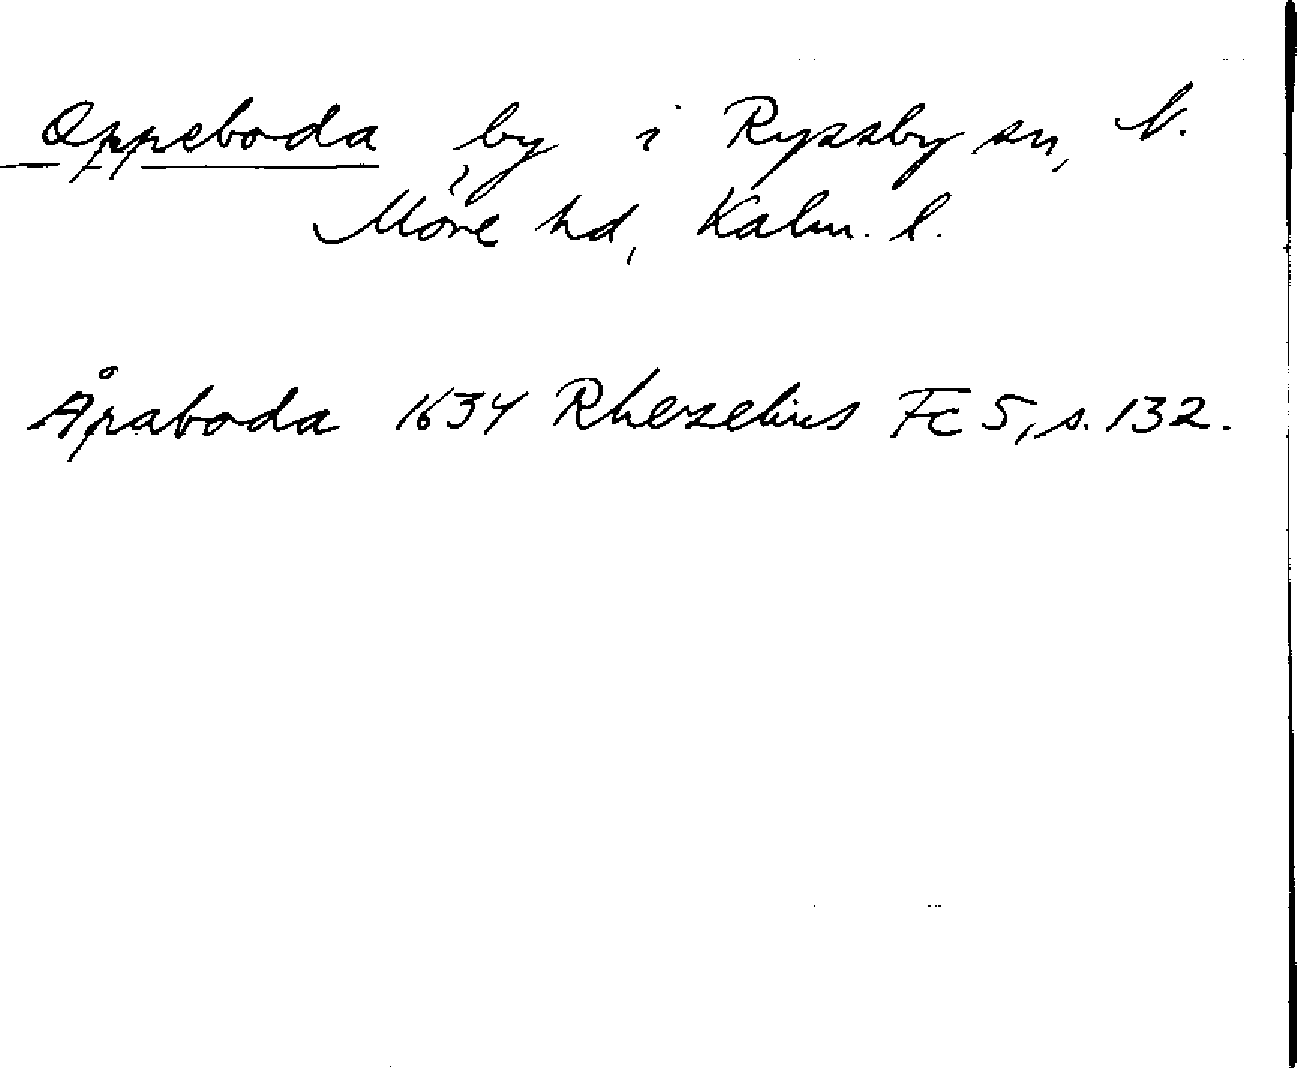 Oppeboda by i Ryssby sn, N.
Möre hd, Kalm. l.
Åpaboda 1634 Rhezelius Fc 5, s. 132.